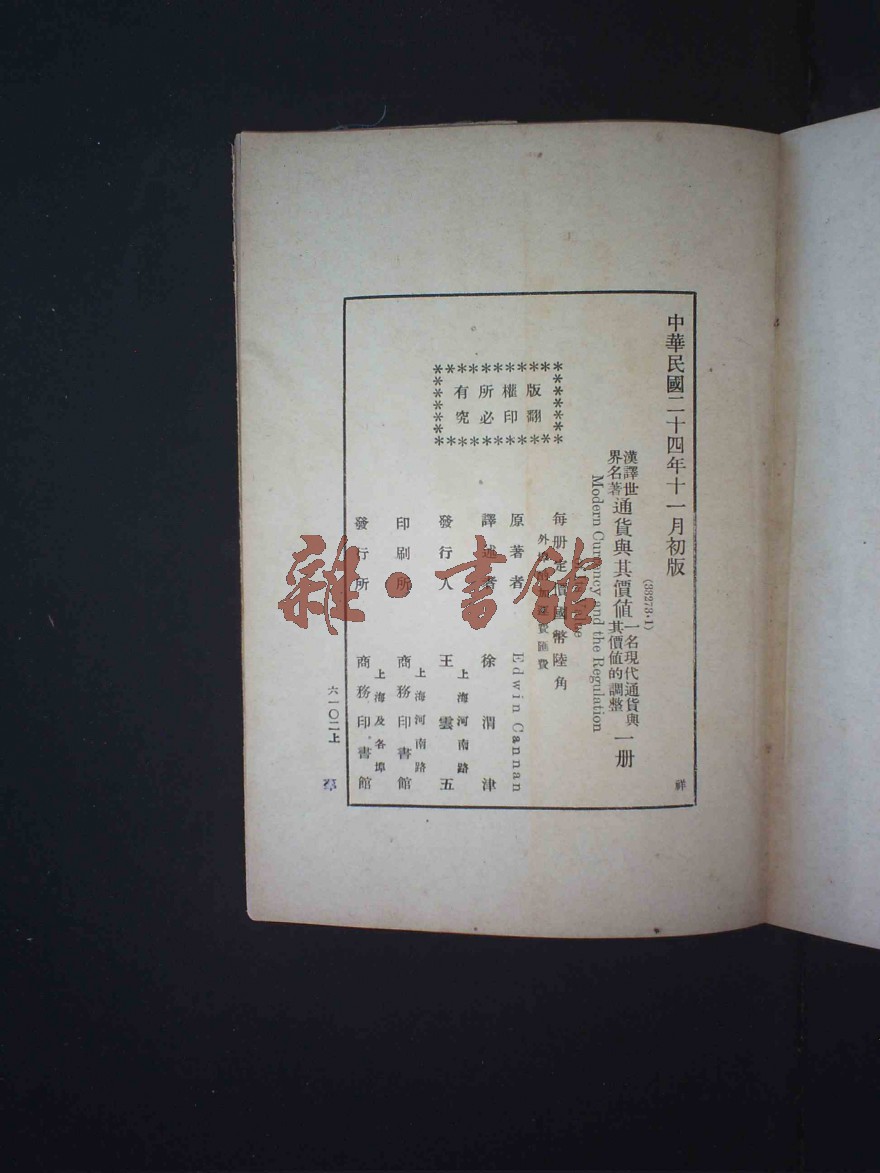 中華民國二十四年十一月初版
祥
(38273·1)
漢譯世界名著
通貨與其價值
一名現代通貨與其價值的調整
一册
Modern Currency and the Regulation
每册定價國幣陸角
外埠酌加運費匯費
版權所有
翻印必究
原著者 Edwin Cannan
譯述者 徐渭津
上海河南路
發行人 王雲五
上海河南路
印刷所 商務印書館
上海及各埠
發行所 商務印書館
六一〇二上
雜·書館